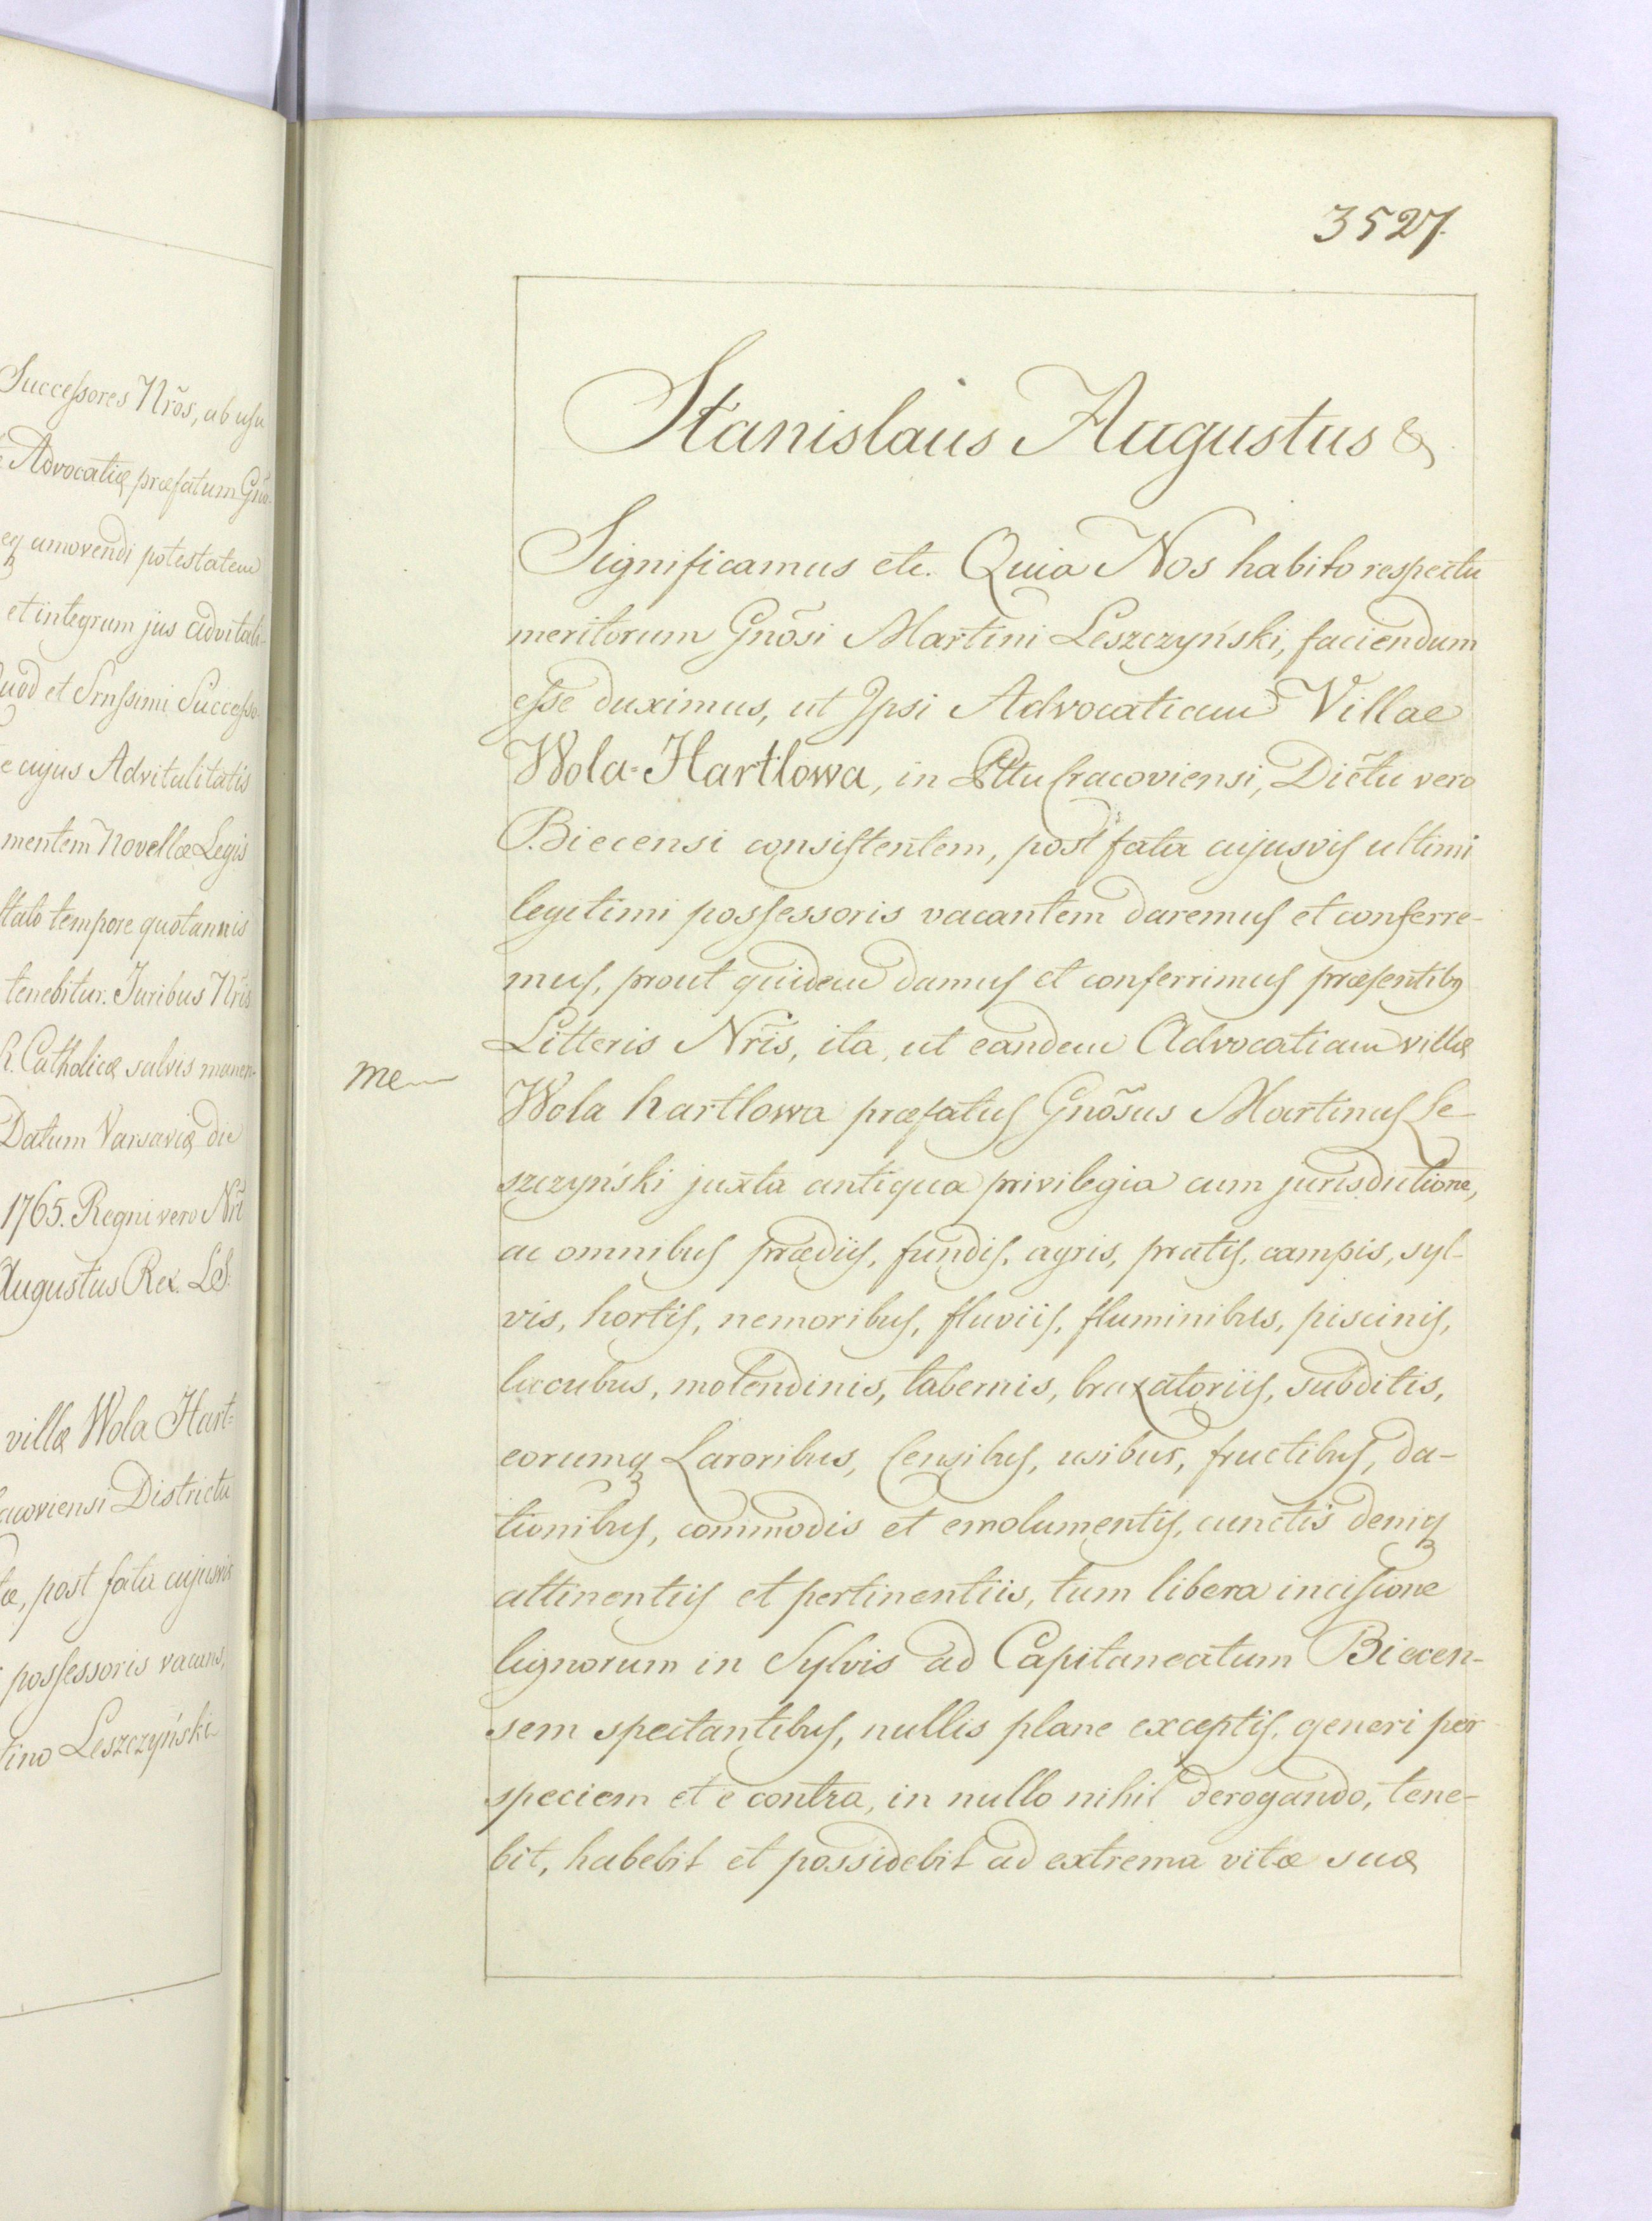 Successores Nrõs, ab usu
Advocatiæ præfatum Gño
eq amovendi potestatem
et integrum jus advitali-
uod et Srnssimi Successo
cujus Advitalitatis
mentem novellæ Legis
stato tempore quotannis
tenebitur. Juribus Nris
R. Catholicæ salvis manen-
Datum Varsaviæ die
1765. Regni vero Nri
Augustus Rex. LS.
villæ Wola Hart-
acoviensi Districtu
æ, post fata cujusvis
possessoris vacans,
tino Leszczyński
3527.
Stanislaus Augustus &
Significamus etc. Quia Nos habito respectu
meritorum Gnõsi Martini Leszczyński, faciendum
esse duximus, ut Ipsi Advocatiam Villae
Wola-Hartlowa, in Pttu Cracoviensi, Dictu vero
Biecensi consistentem, post fata cujusvis ultimi
legitimi possessoris vacantem daremus et conferre-
mus, prout quidem damus et conferrimus præsentibq
Litteris Nris, ita, ut eandem Advocatiam villæ
me
Wola hartlowa præfatus Gnõsus Martinus Le-
szczyński juxta antiqua privilegia cum jurisdictione,
ac omnibus prædiis, fundis, agris, pratis, campis, syl-
vis, hortis, nemoribus, fluviis, fluminibus, piscinis,
lacubus, molendinis, tabernis, braxatoriis, subditis,
eorumq Laroribus, Censibus, usibus, fructibus, da-
tionibus, commodis et emolumentis, cunctis deniq
attinentiis et pertinentiis, tum libera incisione
lignorum in Sylvis ad Capitaneatum Biecen-
sem spectantibus, nullis plane exceptis, generi per
speciem et e contra, in nullo nihil derogando, tene-
bit, habebit et possidebit ad extrema vitæ suæ